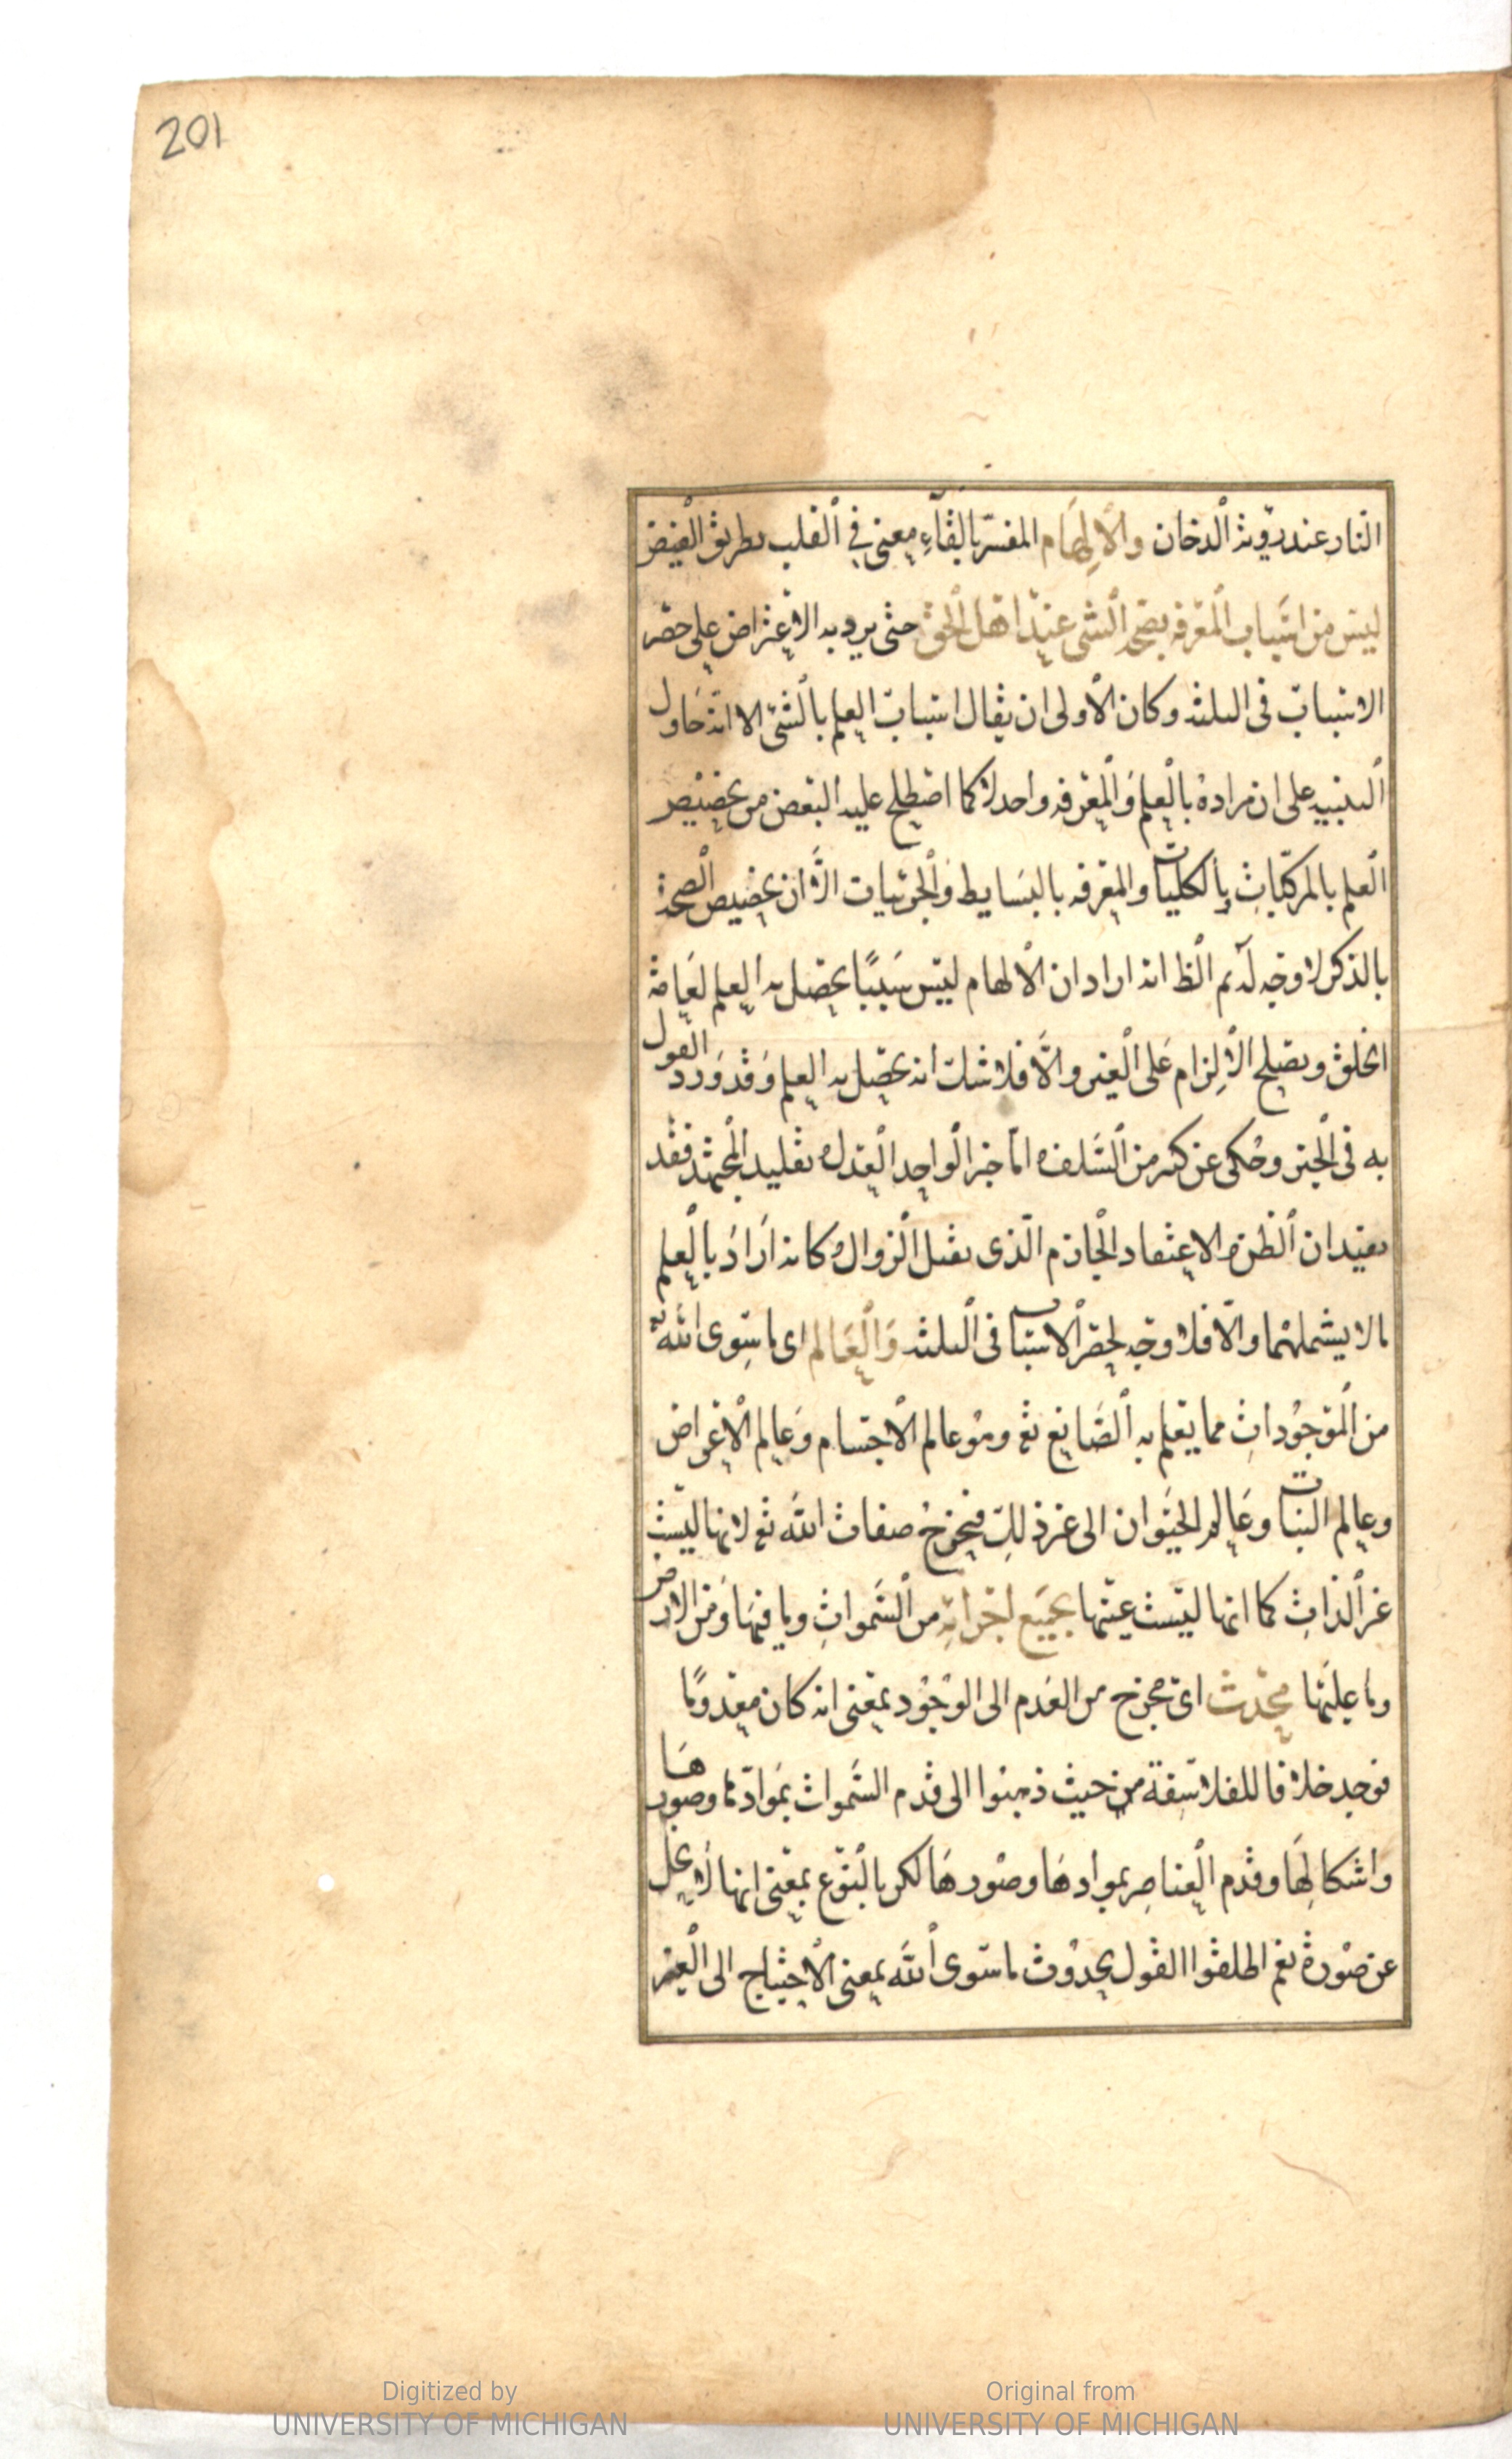 201
النار عند رؤية الدخان والإلهام المفسّر بالقآءِ معنى في القلب بطريق الفيض
ليس من اسباب المعرفه بصحة الشى عند اهل الحق حتى يرد به الاعتراض على حصر
الاسباب فى الثلثه وكان الأولى ان يقال اسباب العلم بالشئ الا انه حاول
التنبيه على ان مراده بالعلم والمعرفه واحد لا كما اصطلح عليه البعض من تخصيص
العلم بالمركبات والكليات والمعرفه بالبسايط والجزئيات الا ان تخصيص الصحة
بالذكر لا وجه له ثم الظ انه اراد ان الالهام ليس سببًا يحصل به العلم لعامة
الخلق ويصلح الالزام على الغير والا فلا شك انه يحصل به العلم وقد ورد القول
به فى الخبر وحكى عن كثير من السلف واما خبر الواحد العدل وتقليد المجتهد فقد
يفيدان الظن والاعتقاد الجازم الذى يقبل الزوال وكانه اراد بالعلم
ما لا يشملهما والا فلا وجه لحصر الاسباب فى الثلثه والعالم اى ما سوى الله تع
من الموجودات مما يعلم به الصانع تع وهو عالم الاجسام وعالم الاعراض
وعالم النبات وعالم الحيوان الى غير ذلك فيخرج صفات الله تع لانها ليست
غير الذات كما انها ليست عينها بجميع اجزائه من السموات وما فيها ومن الارض
وما عليها محدث اى مخرج من العدم الى الوجود بمعنى انه كان معدومًا
فوجد خلافا للفلاسفة من حيث ذهبوا الى قدم السموات بموادها وصورها
واشكالها وقدم العناصر بموادها وصورها لكن بالنوع بمعنى انها لا يخل
عن صورة نعم اطلقوا القول بحدوث ما سوى الله بمعنى الاحتياج الى الغير
Digitized by
UNIVERSITY OF MICHIGAN
Original from
UNIVERSITY OF MICHIGAN